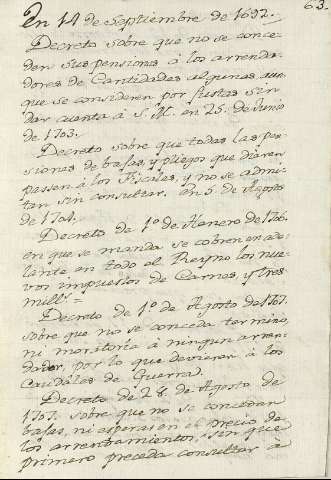 63.
En 14 de Septiembre de 1692.
Decreto sobre que no se conce-
den suspensiones à los arrenda-
dores de Cantidades algunas aun
que se consideren por justas sin
dar cuenta à S. M. en 25. de Junio
de 1703.
Decreto sobre que todas las pre-
siones de bajas, y pliegos que dieren
passen à los Fiscales, y no se admi-
tan sin consultar. en 5. de Agosto
de 1704.
Decreto de 1º de Henero de 1706.
en que se manda se cobren en ade-
lante en todo el Reyno los nue-
vos impuestos de Carnes, y tres
mill.s =
Decreto de 1º de Agosto de 1707.
sobre que no se conceda termino,
ni moritoria à ningun arren-
dador, por lo que devieren à los
Caudales de Guerra.
Decreto de 28. de Agosto de
1707. sobre que no se concedan
bajas, ni esperas en el precio de
los arrendamientos, sin que
primero preceda consultar à